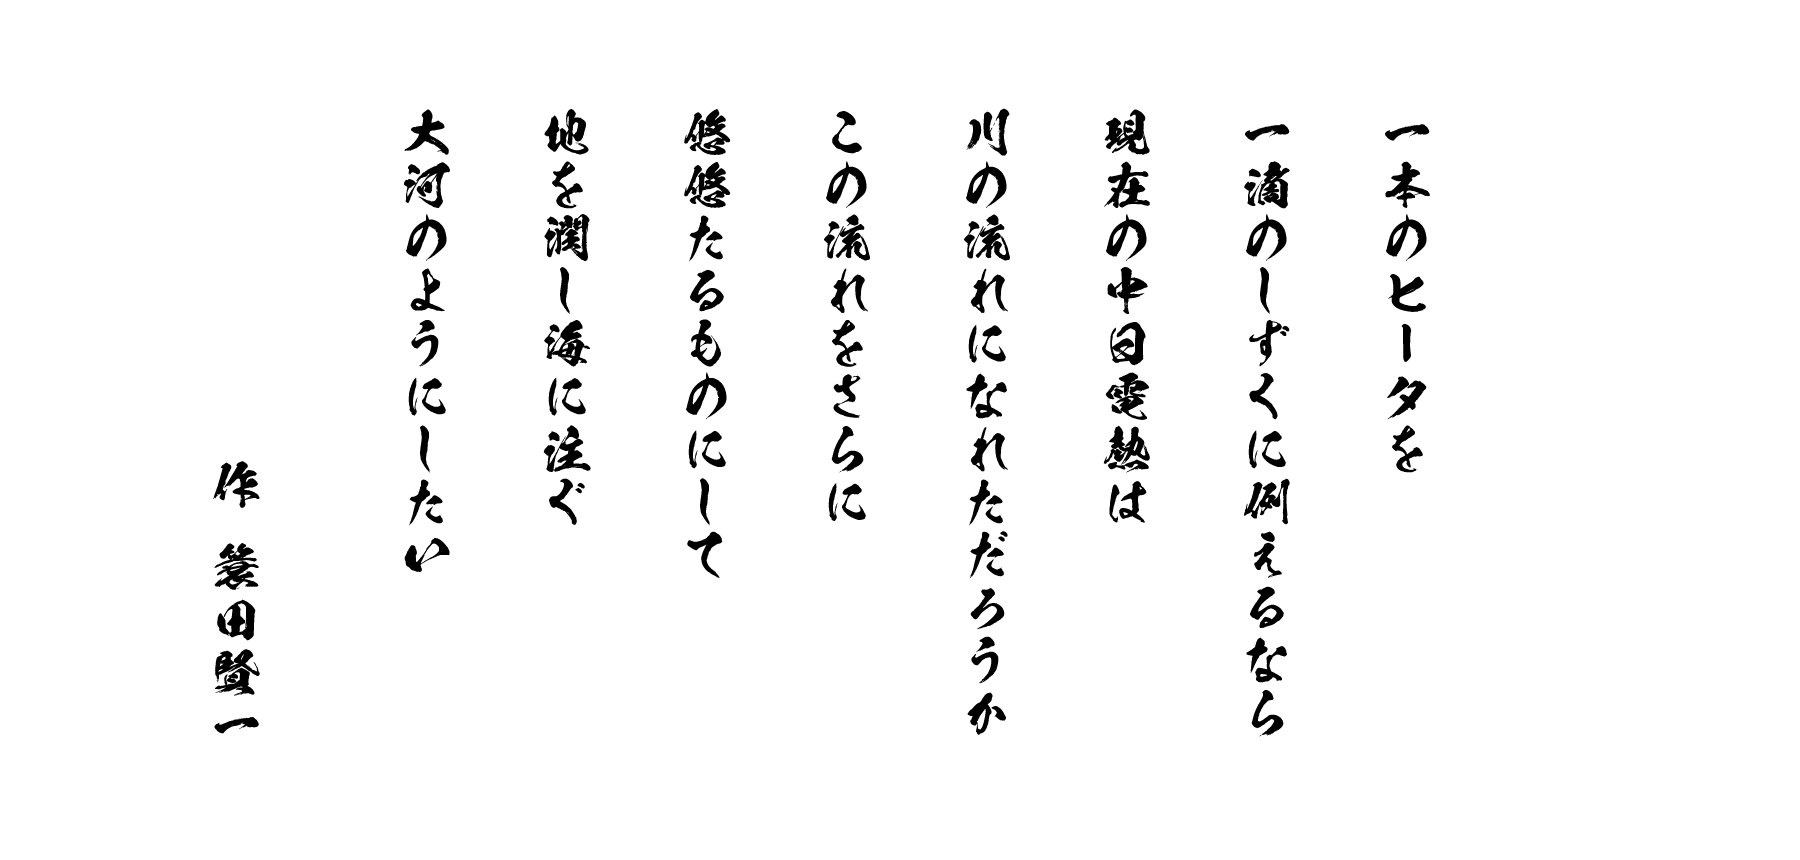 一本のヒータを
一滴のしずくに例えるなら
現在の中日電熱は
川の流れになれただろうか
この流れをさらに
悠悠たるものにして
地を潤し海に注ぐ
大河のようにしたい
作 簑田賢一